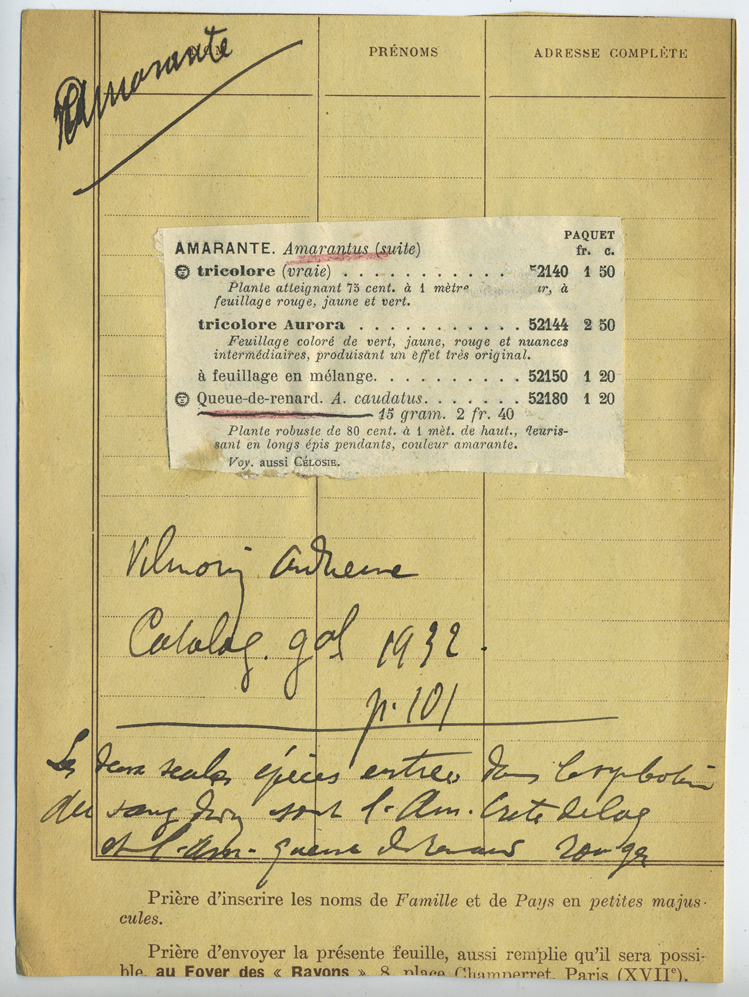 Amarante
PRÉNOMS
ADRESSE COMPLÈTE
PAQUET
AMARANTE. Amarantus (suite) fr. c.
tricolore (vraie) . . . . . . . . . . . . 52140 1 50
Plante atteignant 75 cent. à 1 mètre ur, à
feuillage rouge, jaune et vert.
tricolore Aurora . . . . . . . . . . . 52144 2 50
Feuillage coloré de vert, jaune, rouge et nuances
intermédiaires, produisant un effet très original.
à feuillage en mélange. . . . . . . . . . 52150 1 20
Queue-de-renard. A. caudatus. . . . . . . 52180 1 20
15 gram. 2 fr. 40
Plante robuste de 80 cent. à 1 mèt. de haut., fleuris-
sant en longs épis pendants, couleur amarante.
Voy. aussi CÉLOSIE.
Vilmorin Andrieux
Catalog. gal 1932.
p. 101
Les deux seules épices entrée dans
du sang sont l'Am. Crete de Coq
et l'Am. queue de Renard rouge
Prière d'inscrire les noms de Famille et de Pays en petites majus-
cules.
Prière d'envoyer la présente feuille, aussi remplie qu'il sera possi-
ble, au Foyer des « Rayons », 8, place Champerret, Paris (XVIIe).